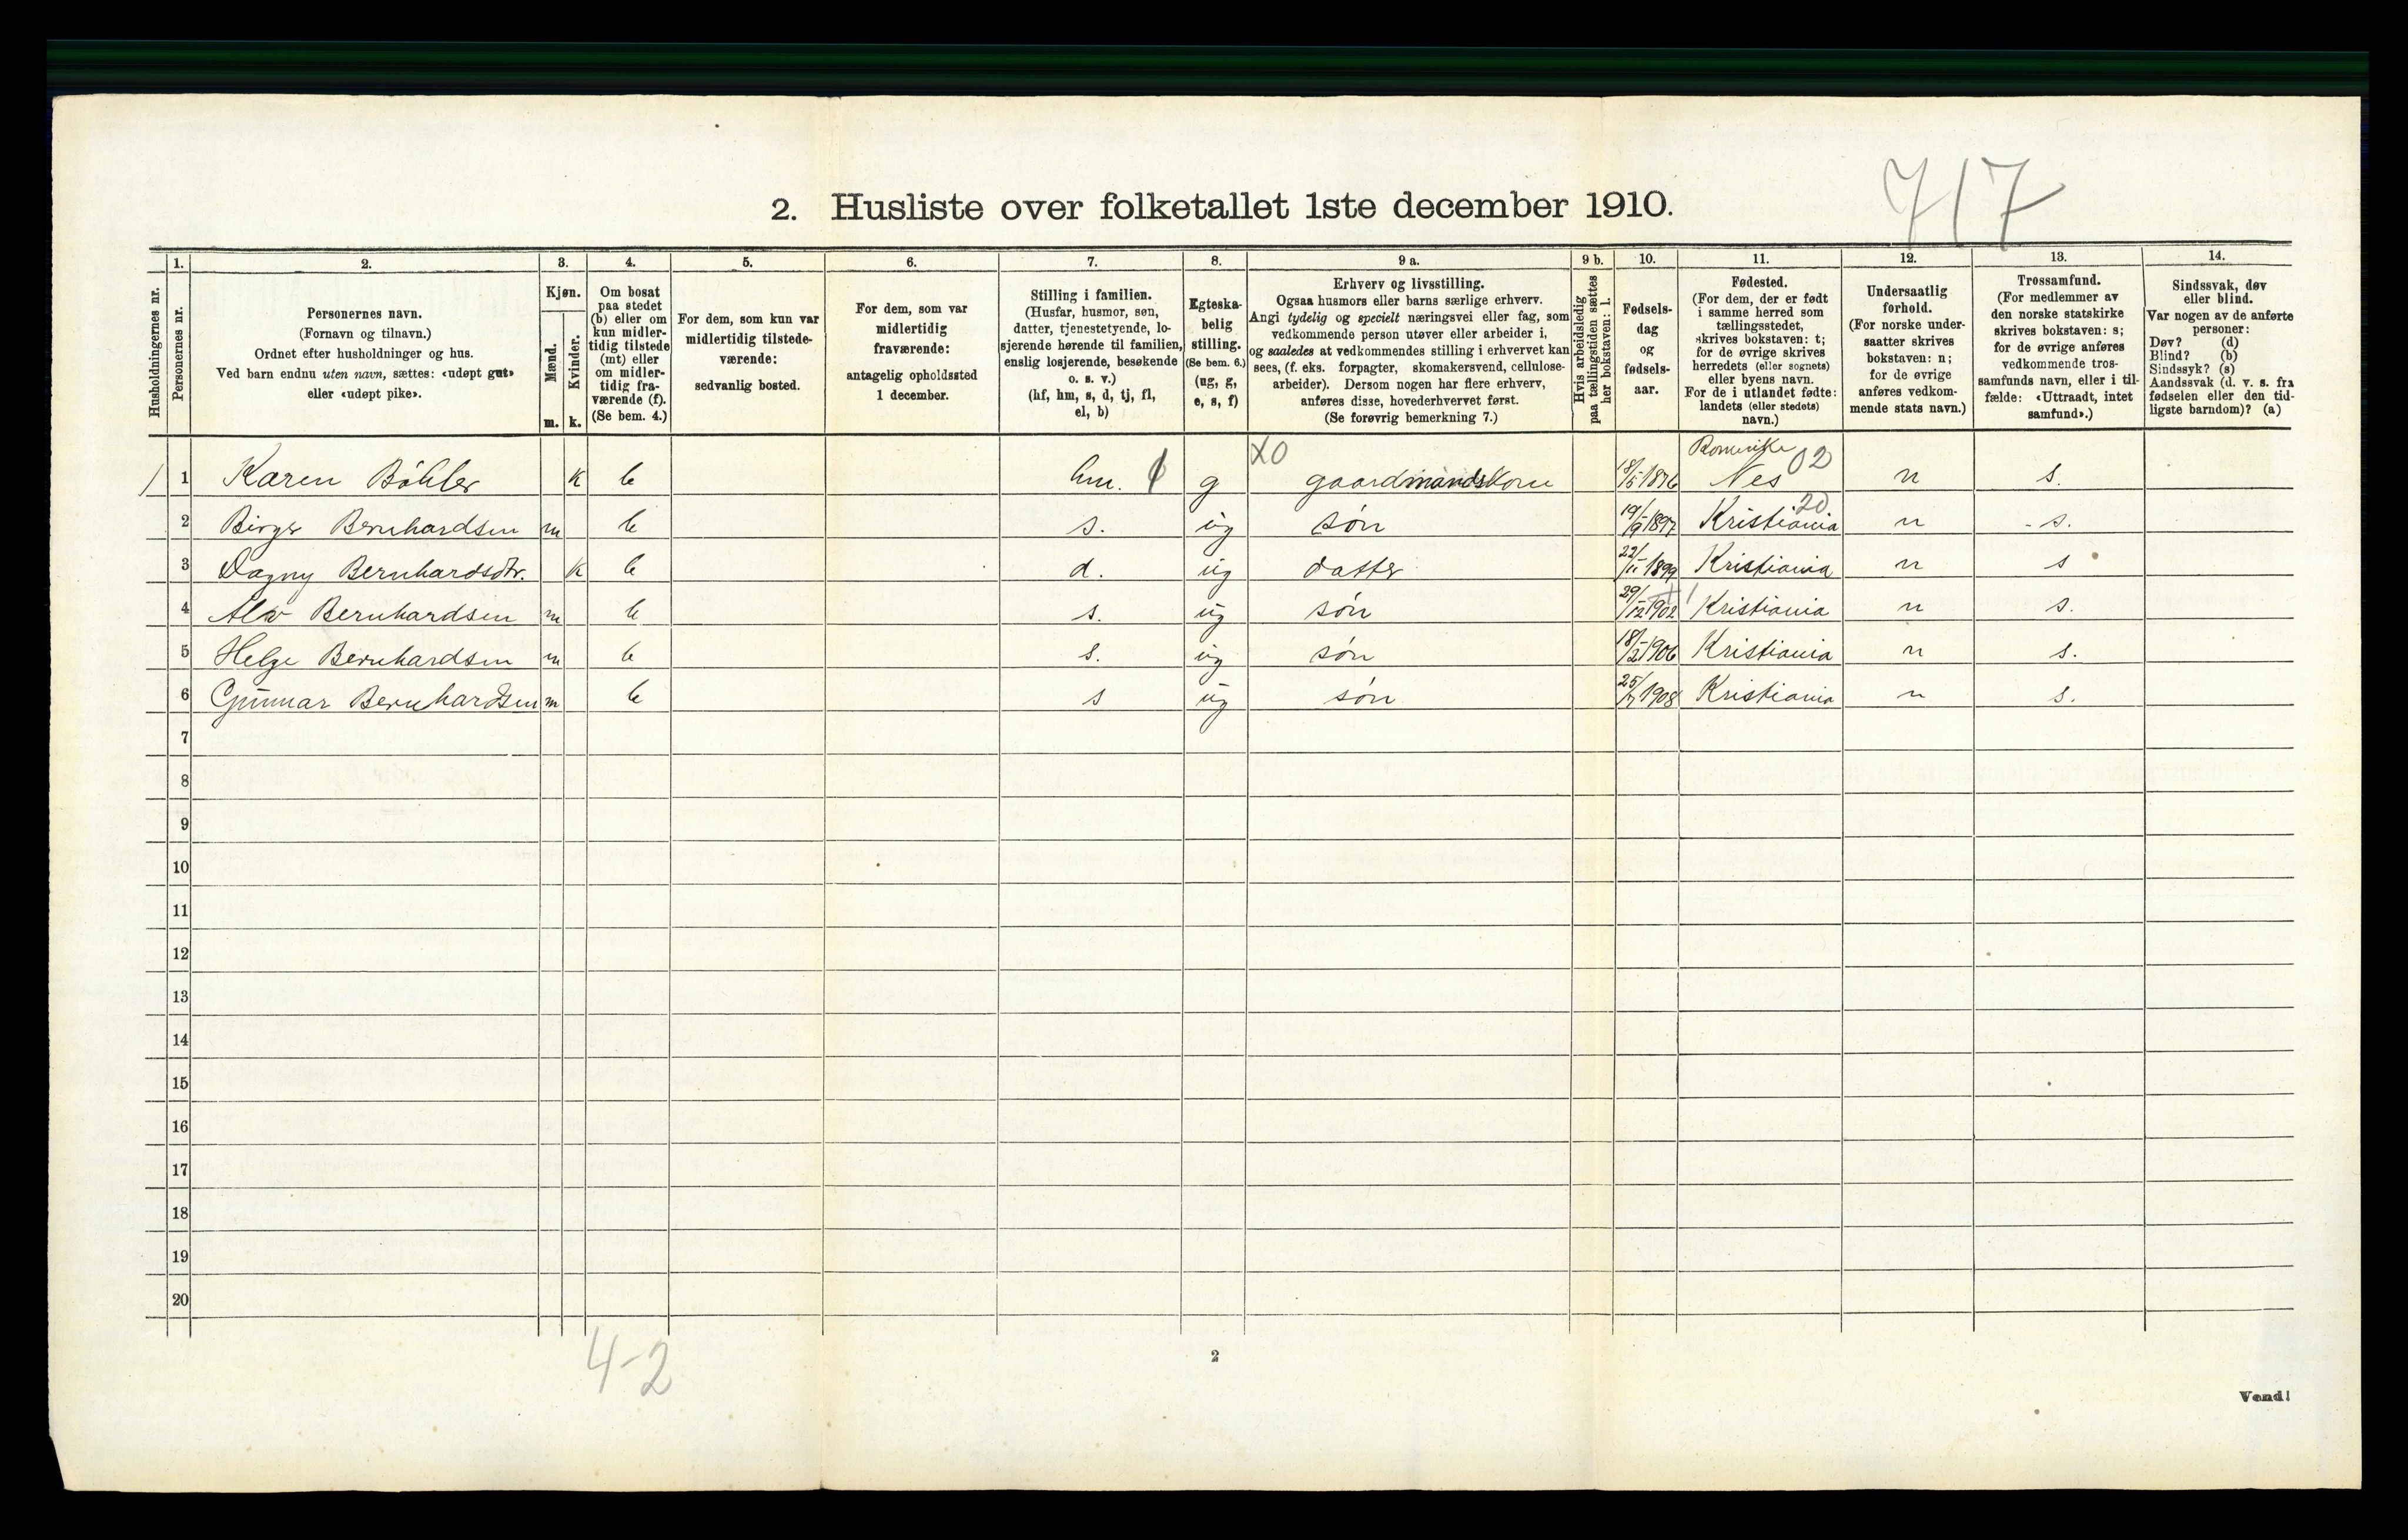 717
2. Husliste over folketallet 1ste december 1910.
1. 2. 3. 4. 5. 6. 7. 8. 9 a. 9 b. 10. 11. 12. 13. 14.
Husholdningernes nr.
Personernes nr.
Personernes navn.
(Fornavn og tilnavn.)
Ordnet efter husholdninger og hus.
Ved barn endnu uten navn, sættes: «udøpt gut»
eller «udøpt pike».
Kjøn.
Mænd.
Kvinder.
m. k.
Om bosat
paa stedet
(b) eller om
kun midler-
tidig tilstede
(mt) eller
om midler-
tidig fra-
værende (f).
(Se bem. 4.)
For dem, som kun var
midlertidig tilstede-
værende:
sedvanlig bosted.
For dem, som var
midlertidig
fraværende:
antagelig opholdssted
1 december.
Stilling i familien.
(Husfar, husmor, søn,
datter, tjenestetyende, lo-
sjerende hørende til familien,
enslig losjerende, besøkende
o. s. v.)
(hf, hm, s, d, tj, fl,
el, b)
Egteska-
belig
stilling.
(Se bem. 6.)
(ug, g,
e, s, f)
Erhverv og livsstilling.
Ogsaa husmors eller barns særlige erhverv.
Angi tydelig og specielt næringsvei eller fag, som
vedkommende person utøver eller arbeider i,
og saaledes at vedkommendes stilling i erhvervet kan
sees, (f. eks. forpagter, skomakersvend, cellulose-
arbeider). Dersom nogen har flere erhverv,
anføres disse, hovederhvervet først.
(Se forøvrig bemerkning 7.)
Hvis arbeidsledig
paa tællingstiden sættes
her bokstaven: l.
Fødsels-
dag
og
fødsels-
aar.
Fødested.
(For dem, der er født
i samme herred som
tællingsstedet,
skrives bokstaven: t;
for de øvrige skrives
herredets (eller sognets)
eller byens navn.
For de i utlandet fødte:
landets (eller stedets)
navn.)
Undersaatlig
forhold.
(For norske under-
saatter skrives
bokstaven: n;
for de øvrige
anføres vedkom-
mende stats navn.)
Trossamfund.
(For medlemmer av
den norske statskirke
skrives bokstaven: s;
for de øvrige anføres
vedkommende tros-
samfunds navn, eller i til-
fælde: «Uttraadt, intet
samfund».)
Sindssvak, døv
eller blind.
Var nogen av de anførte
personer:
Døv? (d)
Blind? (b)
Sindssyk? (s)
Aandssvak (d. v. s. fra
fødselen eller den tid-
ligste barndom)? (a)
X0 Romerike 02
1 Karen Böhler k b hm. g gaardmandskone 18/5 1876 Nes n s.
20
2 Birger Bernhardsen m b s. ug søn 19/9 1897 Kristiania n s.
3 Dagny Bernhardsdtr. k b d. ug datter 22/11 1899 Kristiania n s
4 Alv Bernhardsen m b s. ug søn 29/12 1902 Kristiania n s.
5 Helge Bernhardsen m b s. ug søn 18/2 1906 Kristiania n s.
6 Gunnar Bernhardsen m b s ug søn 25/7 1908 Kristiania n s.
7
8
9
10
11
12
13
14
15
16
17
18
19
20
4-2
2
Vend!